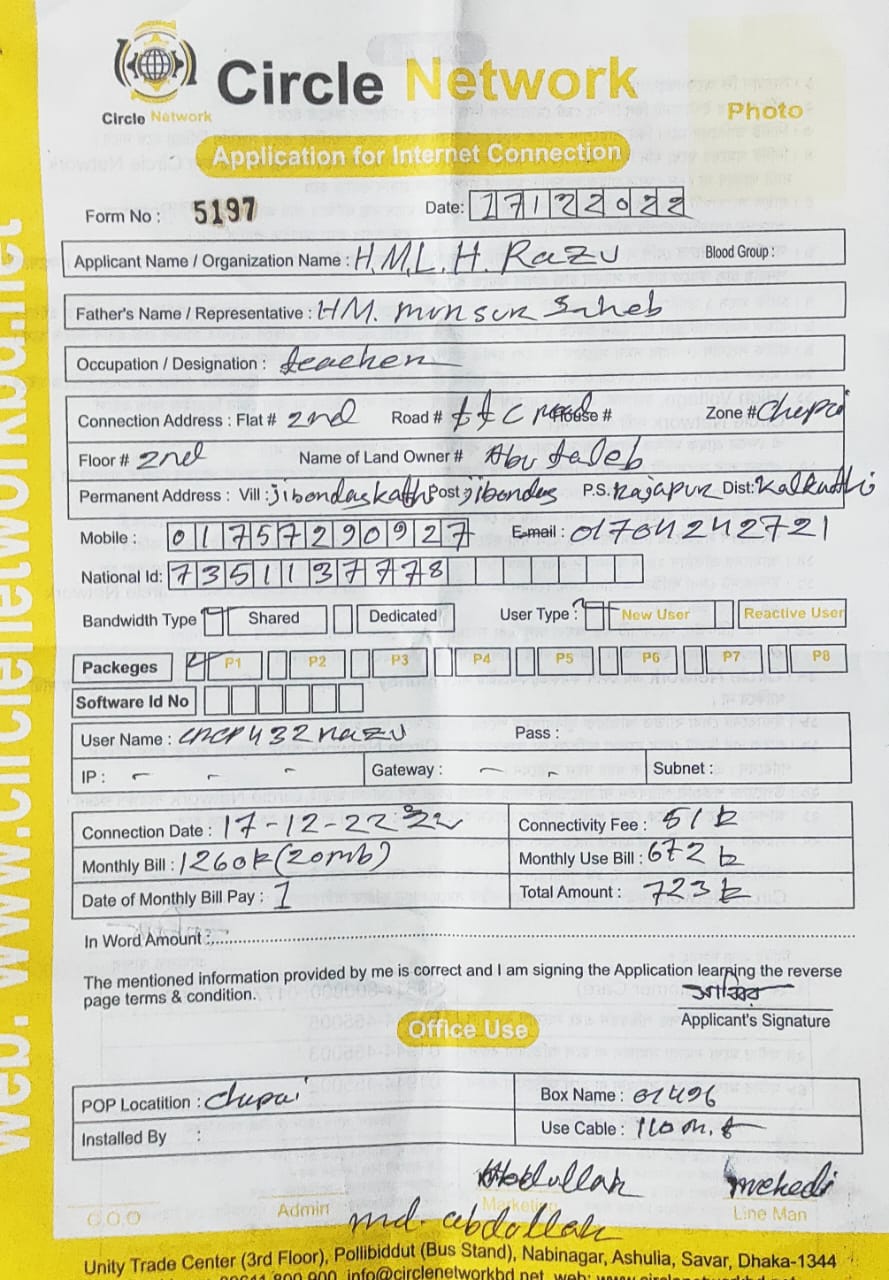 Circle Network
Circle Network
Photo
Application for Internet Connection
Form No : 5197
Date: 17122022
Applicant Name / Organization Name : H.M.L.H. Razu Blood Group :
Father's Name / Representative : HM. monsur Saheb
Occupation / Designation : teacher
Connection Address : Flat # 2nd Road # t t c road House # Zone # Chepai
Floor # 2nd Name of Land Owner # Abu taleb
Permanent Address : Vill : jibondaskathi Post : jibondas P.S. Rajapur Dist:
Mobile : 01757290927 E-mail : 01764242721
National Id: 7351137778
Bandwidth Type Shared Dedicated User Type : New User Reactive User
Packeges P1 P2 P3 P4 P5 P6 P7 P8
Software Id No
User Name : Pass :
IP : - - - Gateway : - - Subnet :
Connection Date : 17-12-22 Connectivity Fee : 51 tk
Monthly Bill : 1260tk (20mb) Monthly Use Bill : 672 tk
Date of Monthly Bill Pay : 1 Total Amount : 723 tk
In Word Amount :
The mentioned information provided by me is correct and I am signing the Application learning the reverse
page terms & condition.
Applicant's Signature
Office Use
POP Locatition : Chepai Box Name :
Installed By : Use Cable : 110 m.
Abdullah mehedi
C.O.O Admin Marketing Line Man
md. abdollah
Unity Trade Center (3rd Floor), Pollibiddut (Bus Stand), Nabinagar, Ashulia, Savar, Dhaka-1344
800 900, info@circlenetworkbd.net, web:
web: www.circlenetworkbd.net